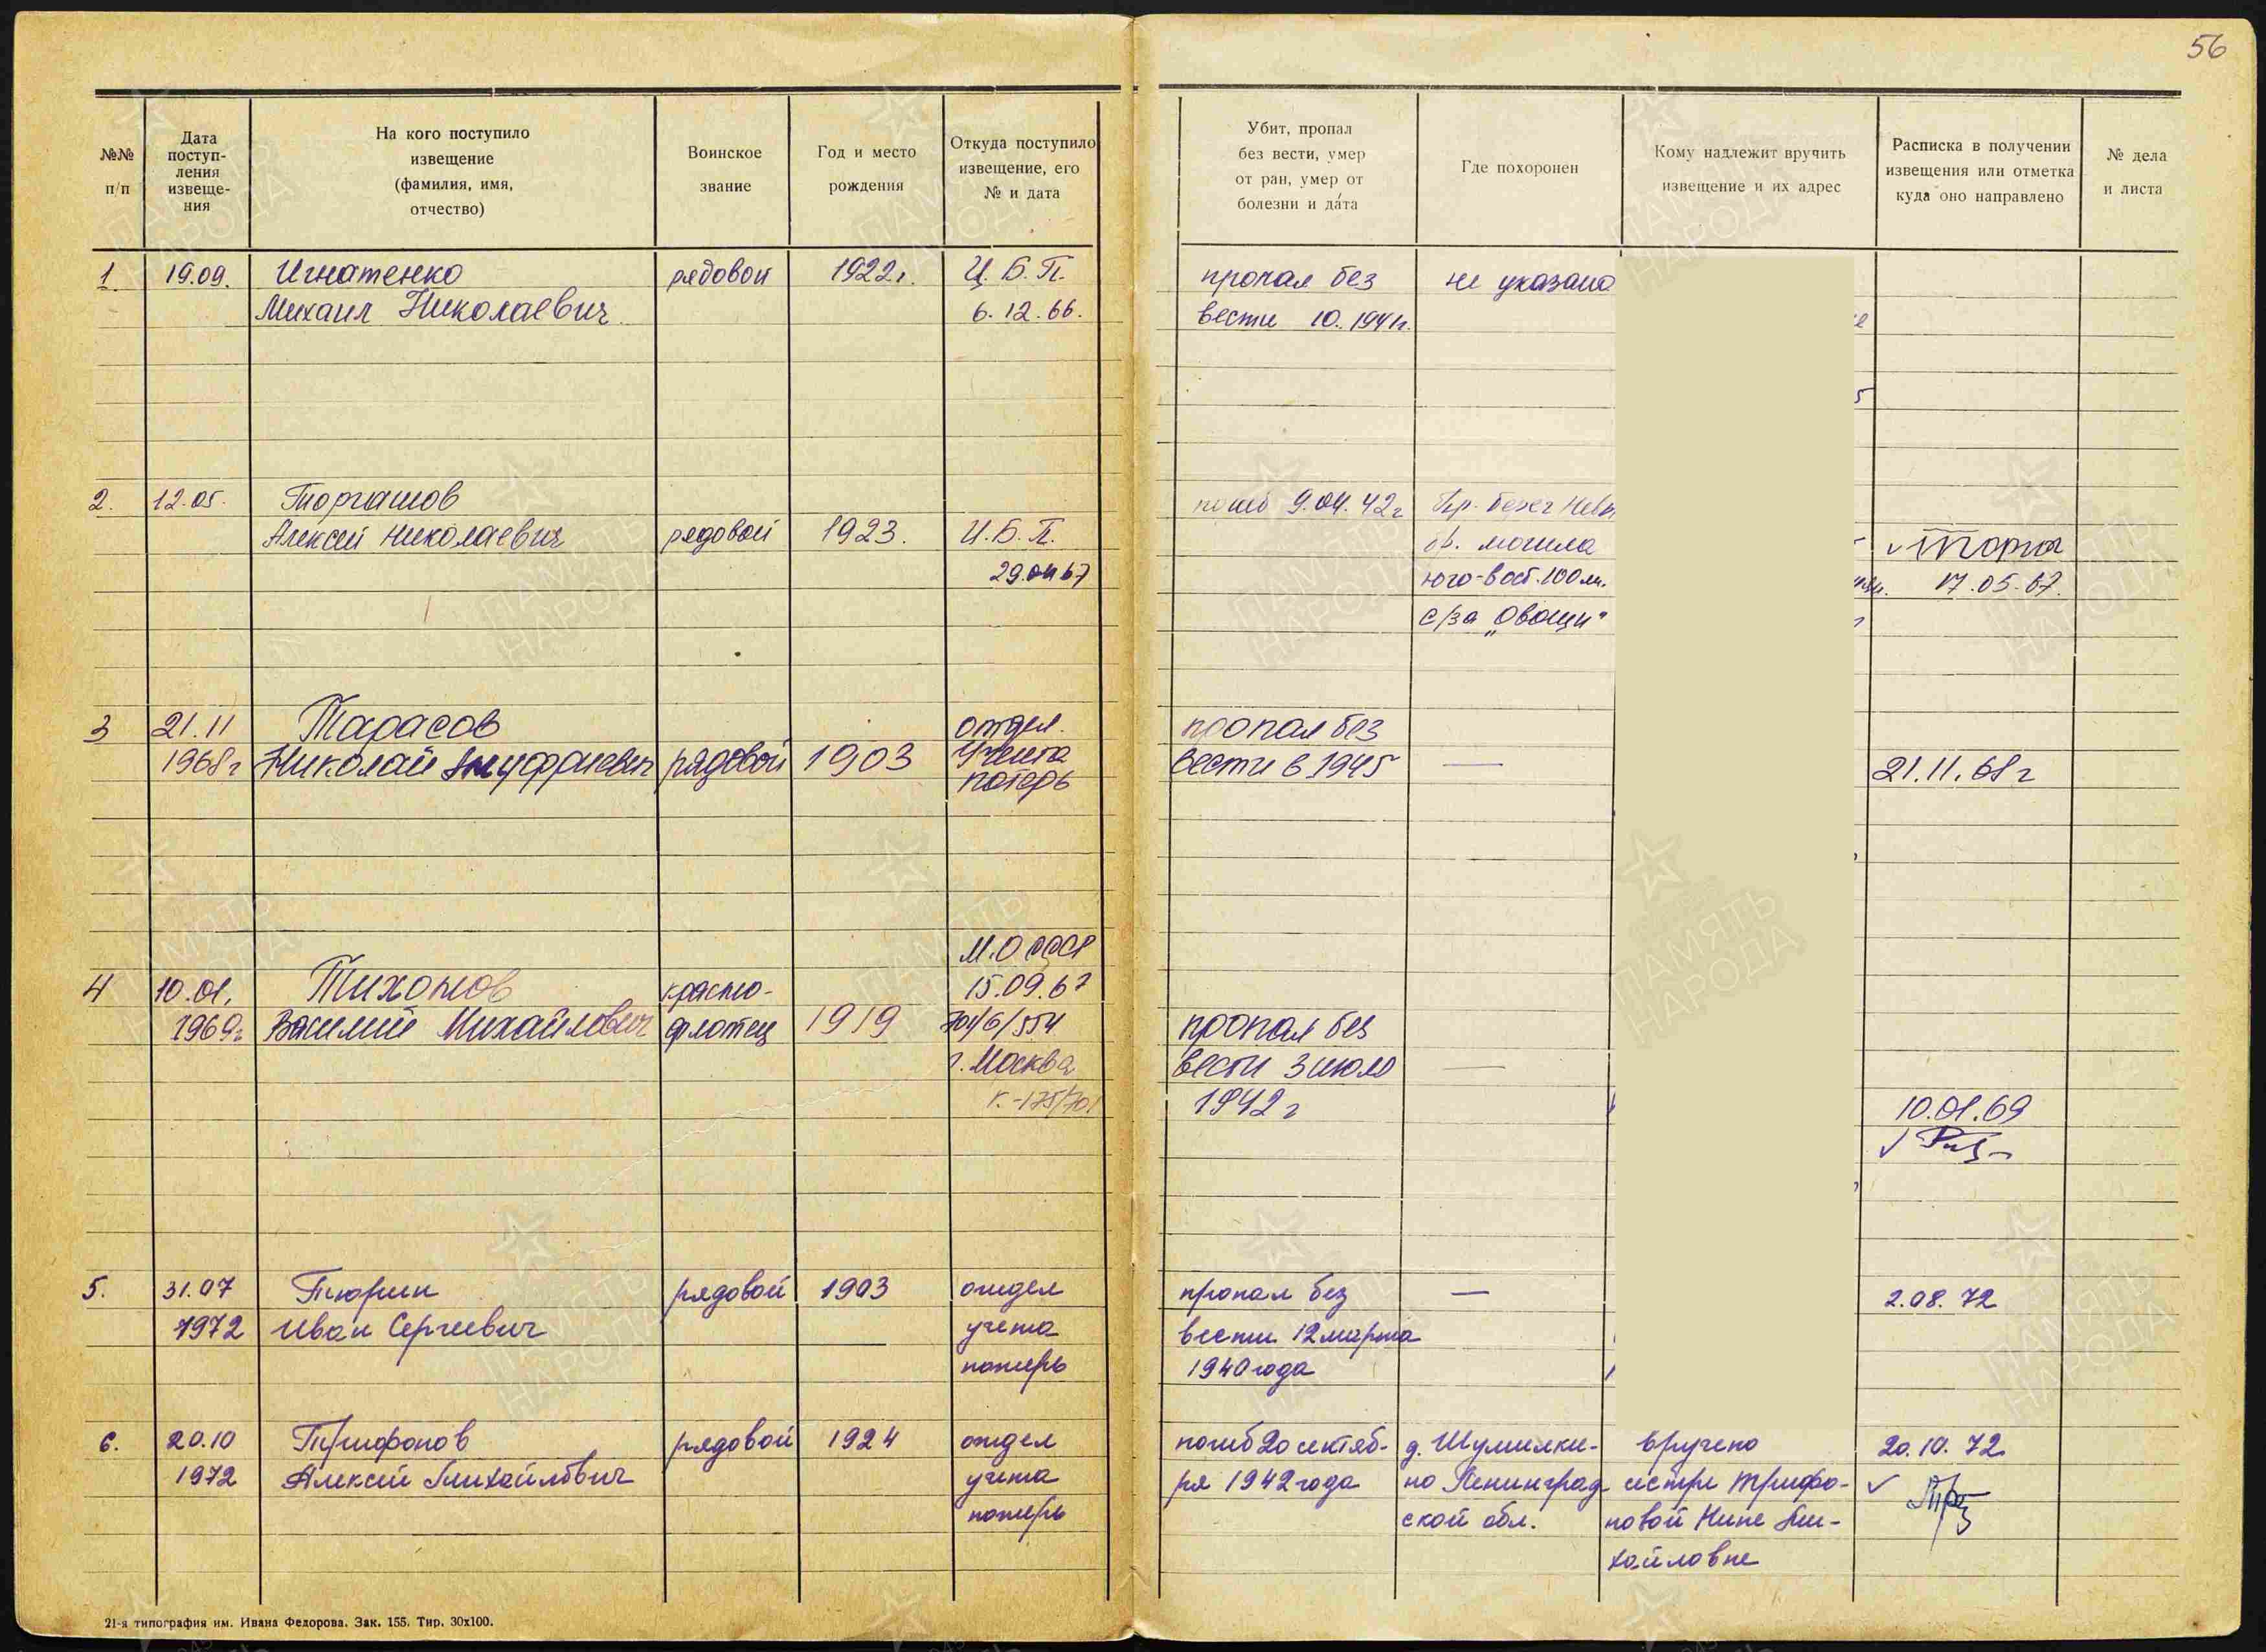 56
№№ п/п
Дата поступ-ления извеще-ния
На кого поступило извещение (фамилия, имя, отчество)
Воинское звание
Год и место рождения
Откуда поступило извещение, его № и дата
Убит, пропал без вести, умер от ран, умер от болезни и дата
Где похоронен
Кому надлежит вручить извещение и их адрес
Расписка в получении извещения или отметка куда оно направлено
№ дела и листа
1. 19.09. Игнатенко рядовой 1922г. Ц.Б.П. пропал без не указано
Михаил Николаевич 6.12.66. вести 10.1941г.
2. 12.05. Торгашов погиб 9.04.42г пр. берег Невы
Алексей Николаевич рядовой 1923. Ц.Б.П. бр. могила
29.04 67 юго-вост. 100 м. 17.05.67.
с/за „Овощи“
3 21.11 Тарасов отдел. пропал без
1968г Николай рядовой 1903 Учета вести в 1945 — 21.11.68г
потерь
М.О СССР
4 10.01. Тихонов красно- 15.09.67
1969г Василий Михайлович флотец 1919 701/6/554 пропал без
г. Москва вести 3 июля —
к.-175/701 1942г 10.01.69
5. 31.07 Тюрин рядовой 1903 отдел пропал без — 2.08.72
1972 Иван Сергеевич — учета вести 12 марта
потерь 1940 года
6. 20.10 Трифонов рядовой 1924 отдел погиб 20 октяб- д. Шумилки- вручено 20.10.72
1972 Алексей Михайлович учета ря 1942 года но Ленинград- сестре Трифо-
потерь ской обл. новой Нине Ми-
хайловне
21-я типография им. Ивана Федорова. Зак. 155. Тир. 30х100.
ПАМЯТЬ НАРОДА